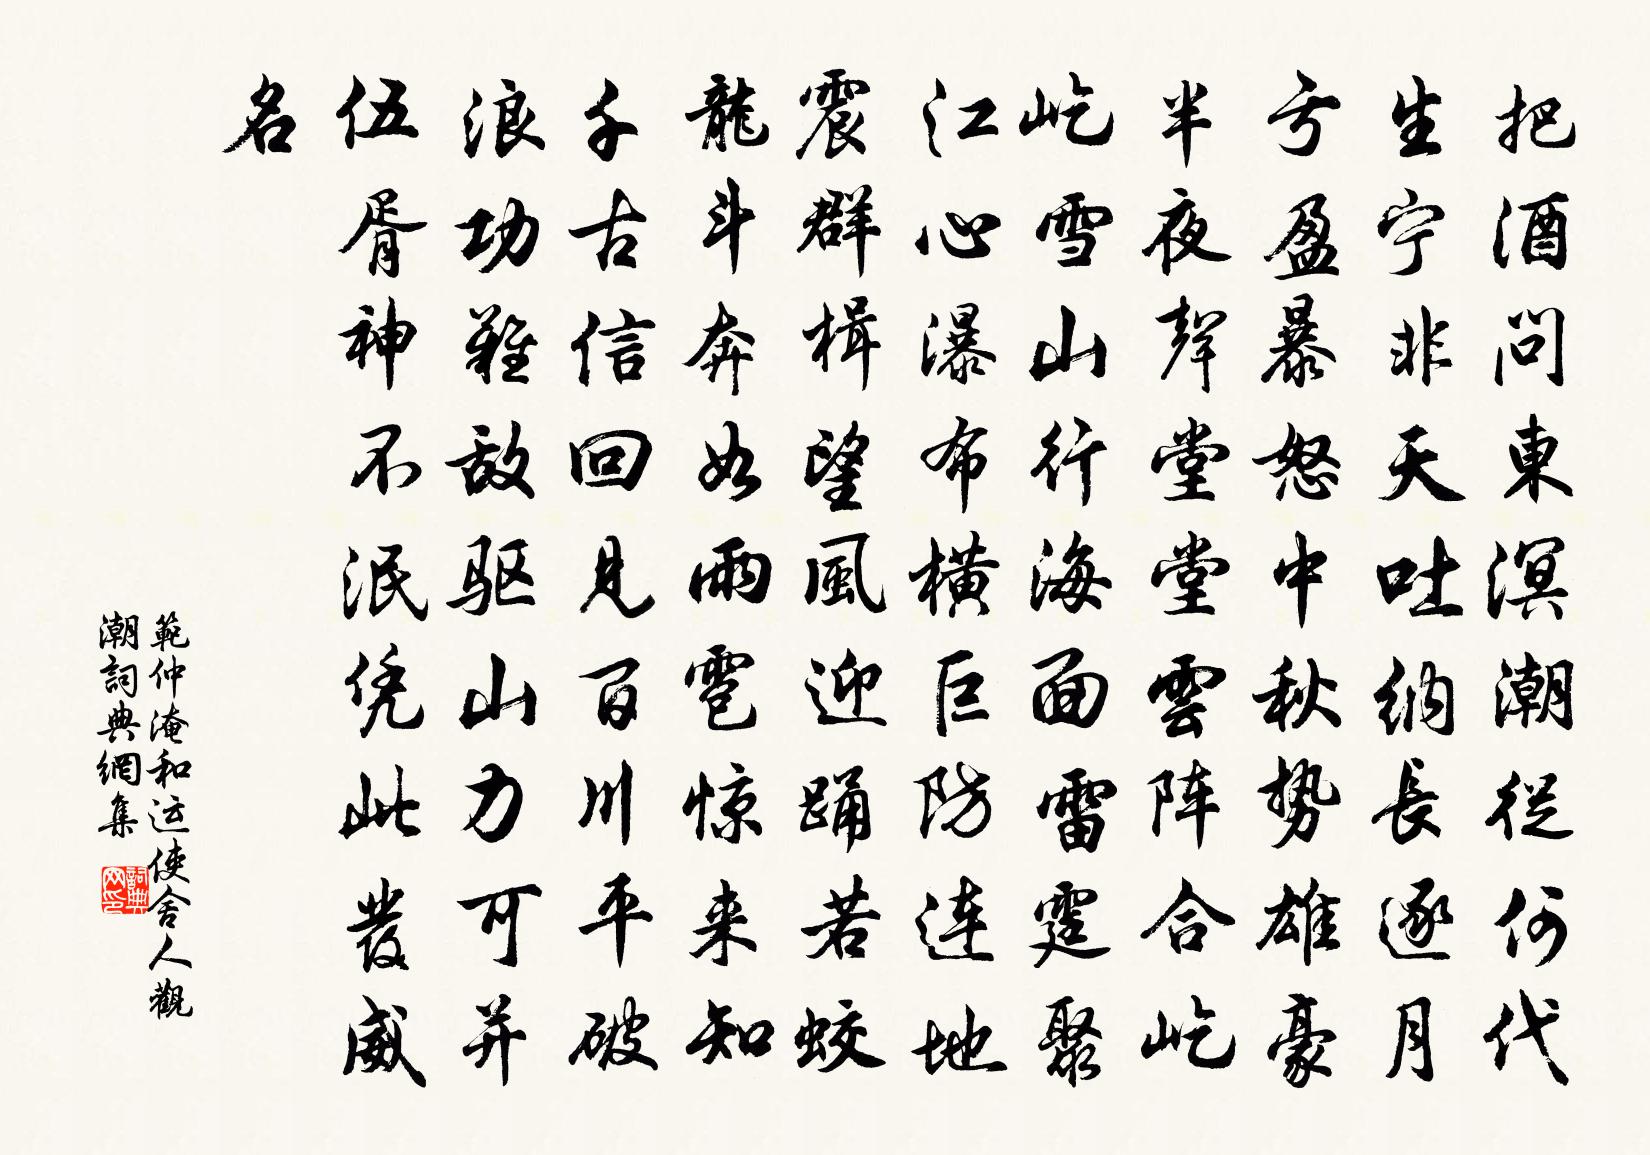 把酒問東溟潮從何代
生宁非天吐納長逐月
亏盈暴怒中秋势雄豪
半夜聲堂堂雲阵合屹
屹雪山行海面雷霆聚
江心瀑布橫巨防连地
震群楫望風迎踊若蛟
龍斗奔如雨雹惊来知
千古信回見百川平破
浪功難敌驱山力可并
伍胥神不泯凭此發威
名
範仲淹和运使舍人觀
潮詞典網集
詞典网印